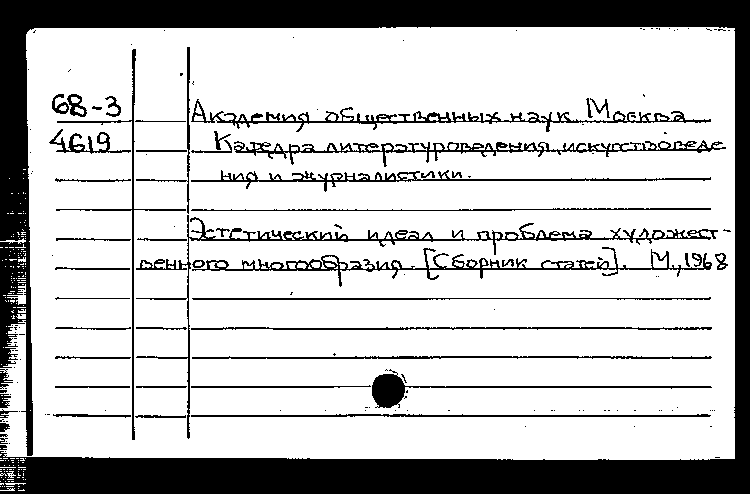 68-3
4619
Академия общественных наук Москва
Кафедра литературоведения, искусствоведе
ния и журналистики.
Эстетический идеал и проблема художест-
венного многообразия. [Сборник статей]. М., 1968